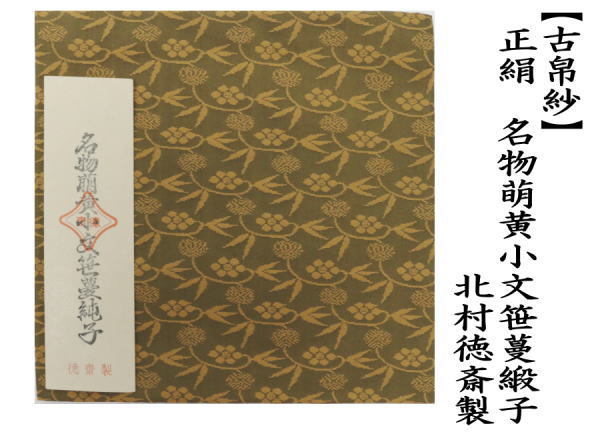 【古帛紗】
正絹　名物萌黄小文笹蔓緞子
北村徳斎製
名物萌黄小文笹蔓純子
徳齋製